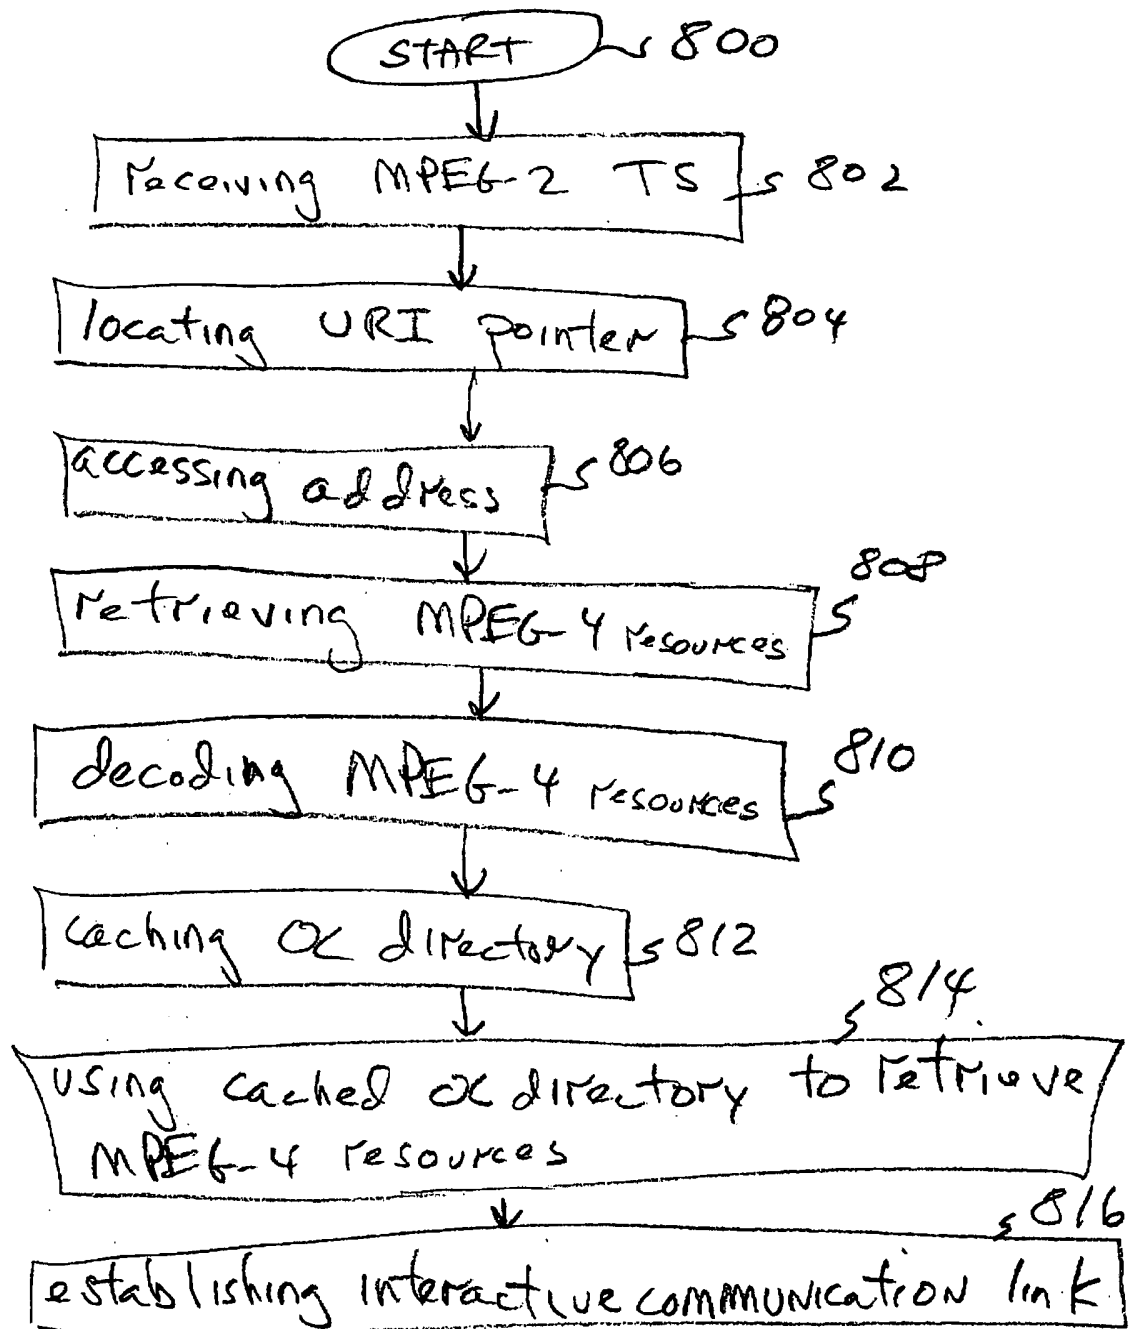 START 800
receiving MPEG-2 TS 802
locating URI pointer 804
accessing address 806
808
retrieving MPEG-4 resources
810
decoding MPEG-4 resources
caching OC directory 812
814
using cached OC directory to retrieve
MPEG-4 resources
816
establishing interactive communication link